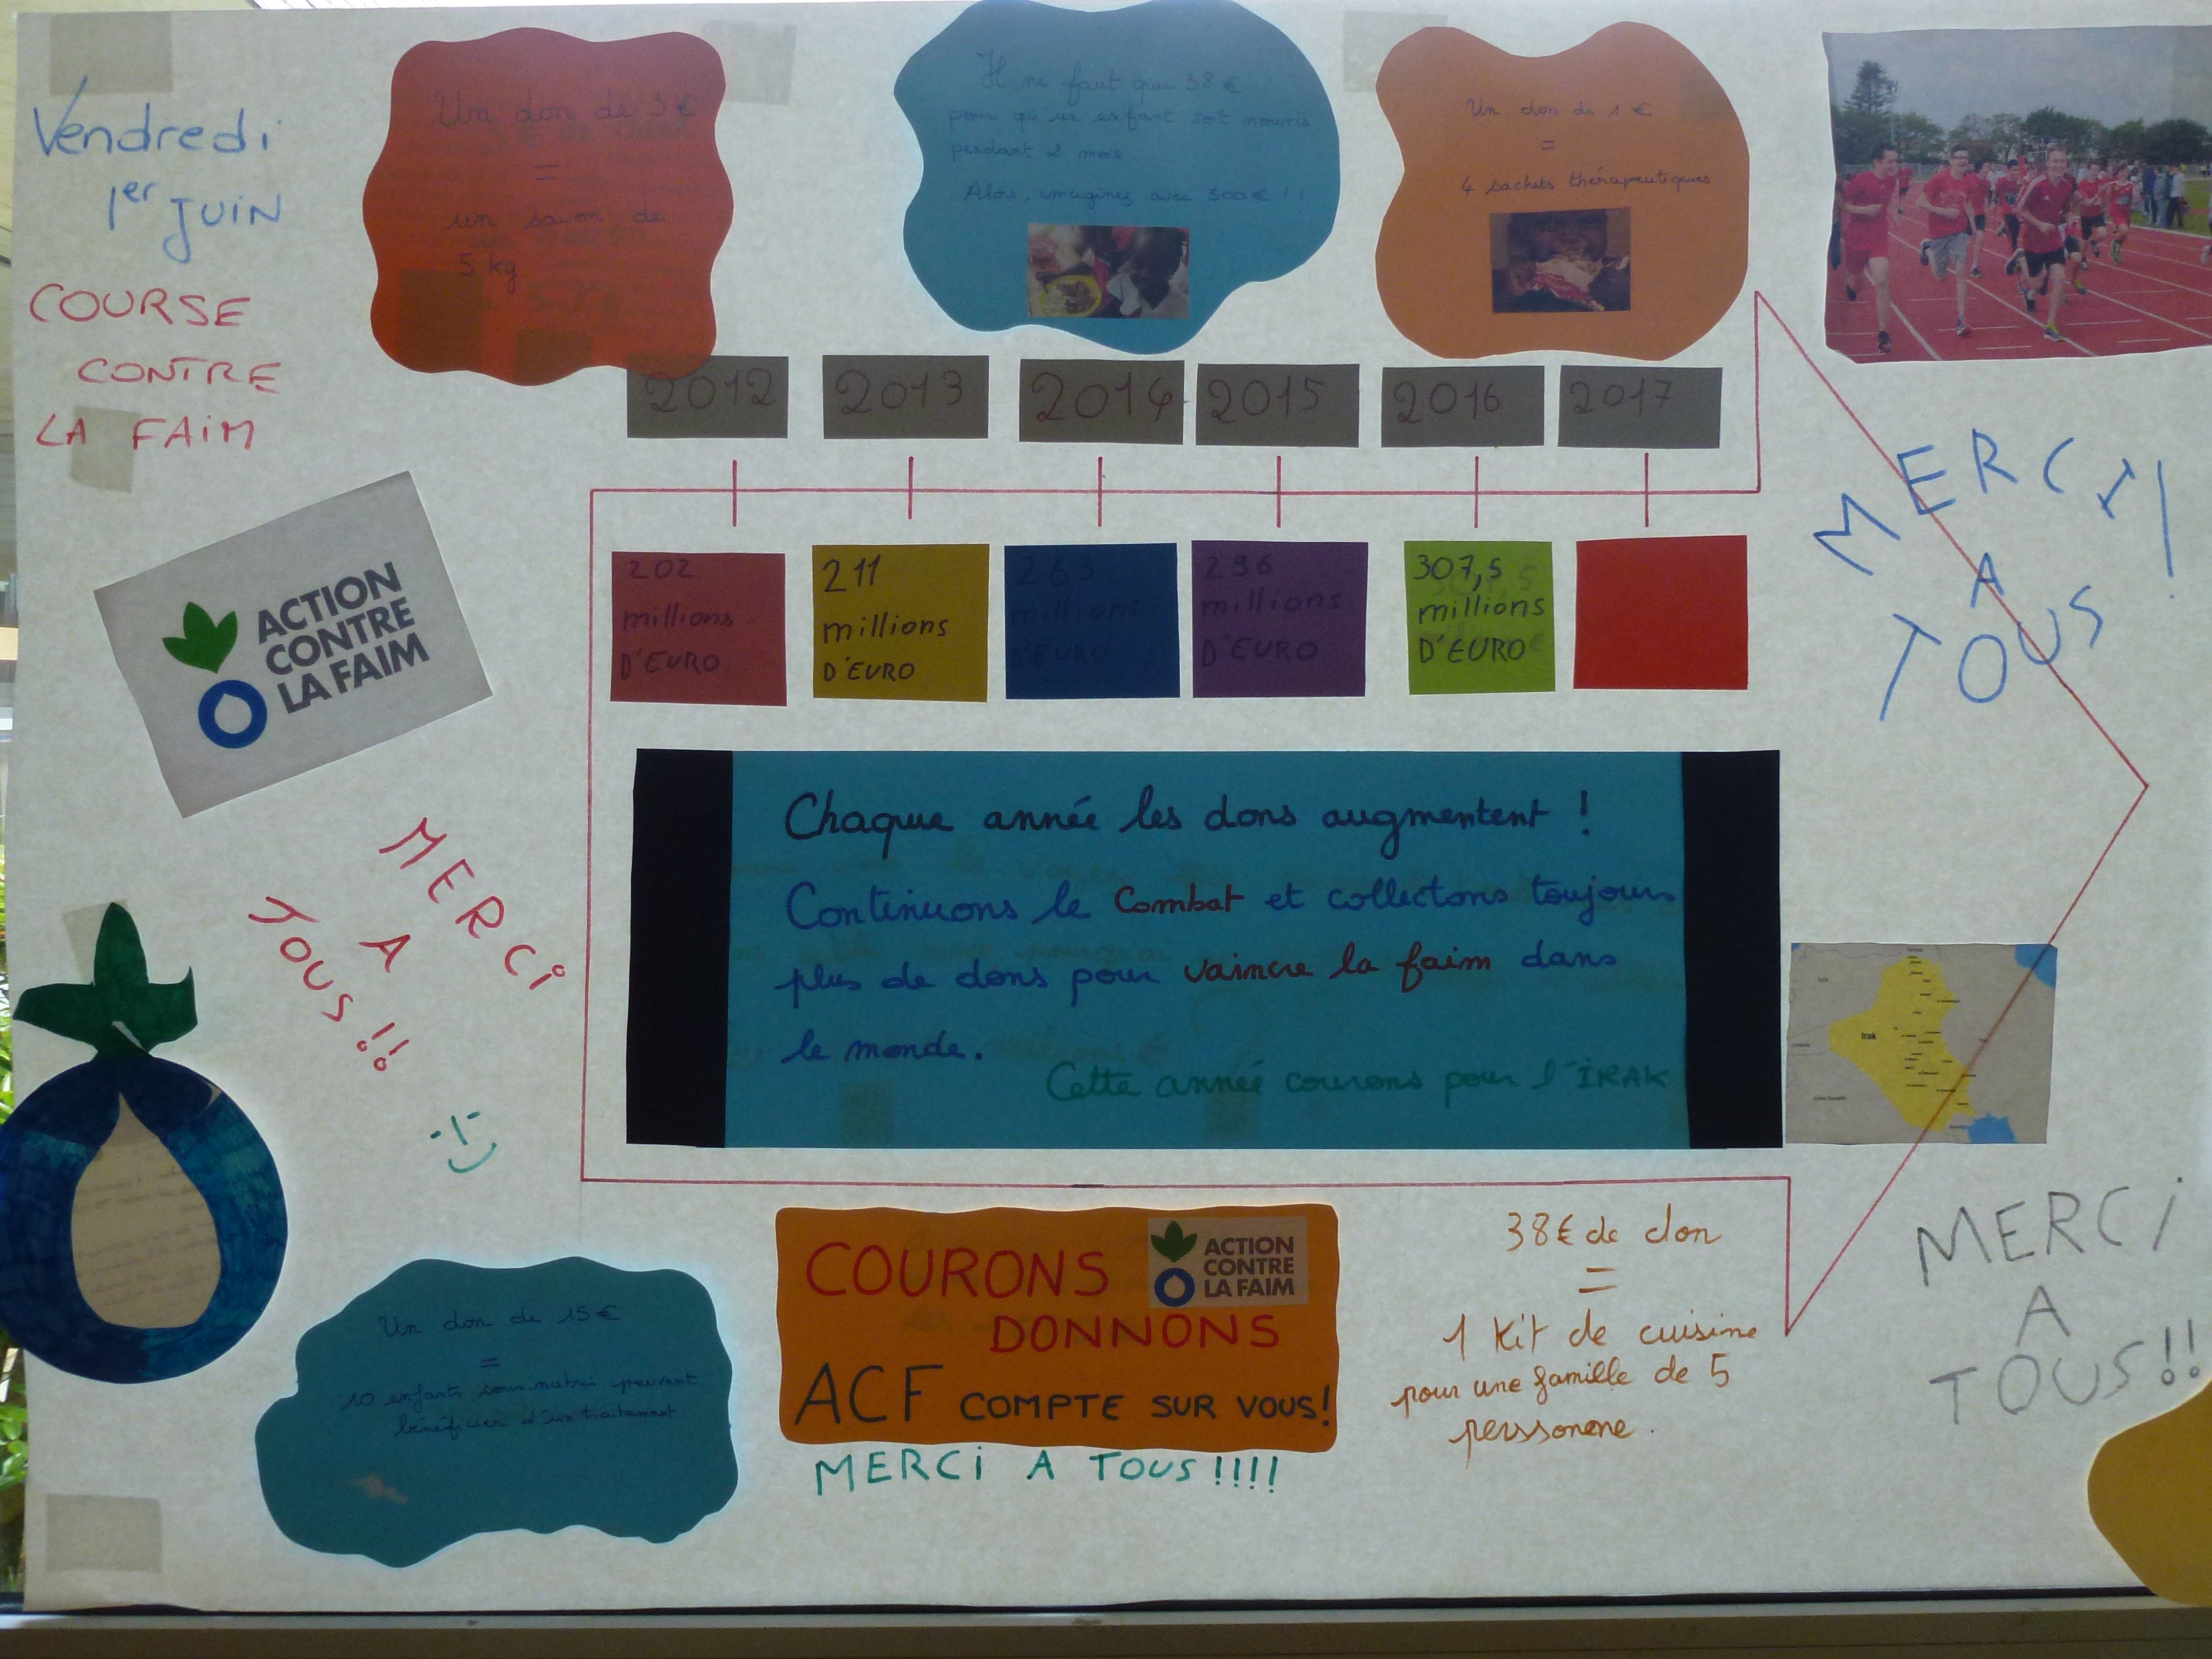 Vendredi
1er JUIN
COURSE
CONTRE
LA FAIM
Un don de 3€
=
un savon de
5 kg
Il ne faut que 38 €
pour qu'un enfant soit nourris
pendant 2 mois
Alors, imaginez avec 500€ !!
Un don de 1 €
=
4 sachets thérapeutiques
2012
2013
2014
2015
2016
2017
202
millions
D'EURO
211
millions
D'EURO
263
millions
D'EURO
296
millions
D'EURO
307,5
millions
D'EURO
MERCI!
A
TOUS
ACTION
CONTRE
LA FAIM
MERCI
A
TOUS!!
Chaque année les dons augmentent !
Continuons le Combat et collectons toujours
plus de dons pour vaincre la faim dans
le monde.
Cette année courons pour l'IRAK
Irak
Un don de 15€
=
10 enfants sous nutris peuvent
bénéficier d'un traitement
COURONS
ACTION
CONTRE
LA FAIM
DONNONS
ACF COMPTE SUR VOUS!
MERCI A TOUS!!!!
38€ de don
=
1 Kit de cuisine
pour une famille de 5
perssonene.
MERCI
A
TOUS!!